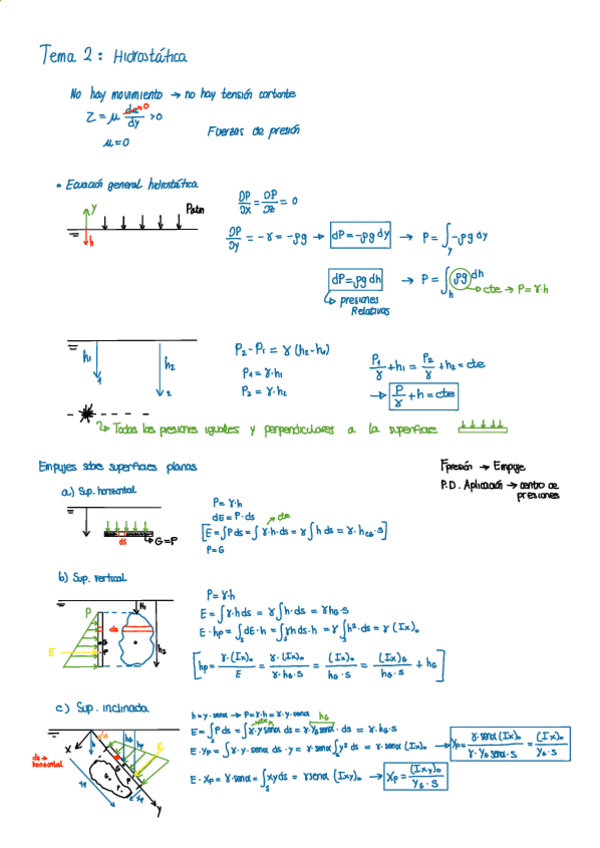 Tema 2: Hidrostática
No hay movimiento → no hay tensión cortante
Z = μ du/dy → 0
μ = 0
Fuerzas de presión
• Ecuación general hidrostática
∂P/∂x = ∂P/∂z = 0
y
Patm
h
∂P/∂y = -γ = -ρg → dP = -ρg dy → P = ∫y -ρg dy
dP = ρg dh → P = ∫h ρg dh
cte → P = γ·h
↳ presiones
Relativas
h₁
h₂
1
2
P₂ - P₁ = γ (h₂ - h₁)
P₁ = γ·h₁
P₂ = γ·h₂
P₁/γ + h₁ = P₂/γ + h₂ = cte
→ P/γ + h = cte
↳ Todas las presiones iguales y perpendiculares a la superficie
Empujes sobre superficies planas
Fpresión → Empuje
P.D. Aplicación → centro de
presiones
a) Sup. horizontal
P = γ·h
dE = P·ds
cte
[E = ∫P ds = ∫γ·h·ds = γ∫h ds = γ·hCG·S]
P = G
ds
G = P
b) Sup. vertical
P = γ·h
E = ∫γ·h ds = γ∫h·ds = γhG·S
E·hp = ∫dE·h = ∫γh ds·h = γ∫h²·ds = γ (Ix)₀
[hp = γ·(Ix)₀/E = γ·(Ix)₀/γ·hG·S = (Ix)₀/hG·S = (Ix)G/hG·S + hG]
P
ds
E
H₁
h₂
c) Sup. inclinada
h = y·senα → P = γ·h = γ·y·senα
hG
E = ∫P ds = ∫γ·y senα ds = γ·YG senα·ds = γ·hG·S
E·Yp = ∫γ·y·senα ds·y = γ·senα∫y² ds = γ·senα (Ix)₀ → Yp = γ·senα (Ix)₀/γ·YG senα·S = (Ix)₀/YG·S
E·Xp = γ·senα = ∫xy ds = γ senα (Ixy)₀ → Xp = (Ixy)₀/YG·S
ds →
horizontal
x
E
y